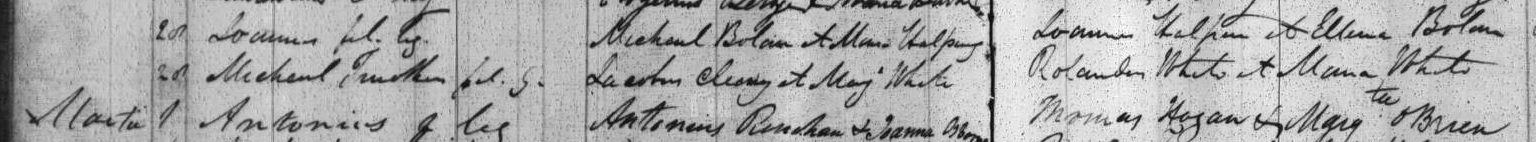 28 Joannes fil. leg. Michael Bolan et Maria Halpin Joannes Halpin et Ellena Bolan
28 Michael Timotheus fil. lg. Jacobus Cleary et Marg White Rolandus White et Maria White
Martii 1 Antonius f leg Antonius Renehan & Joanna Thomas Hogan & Margta O'Brien